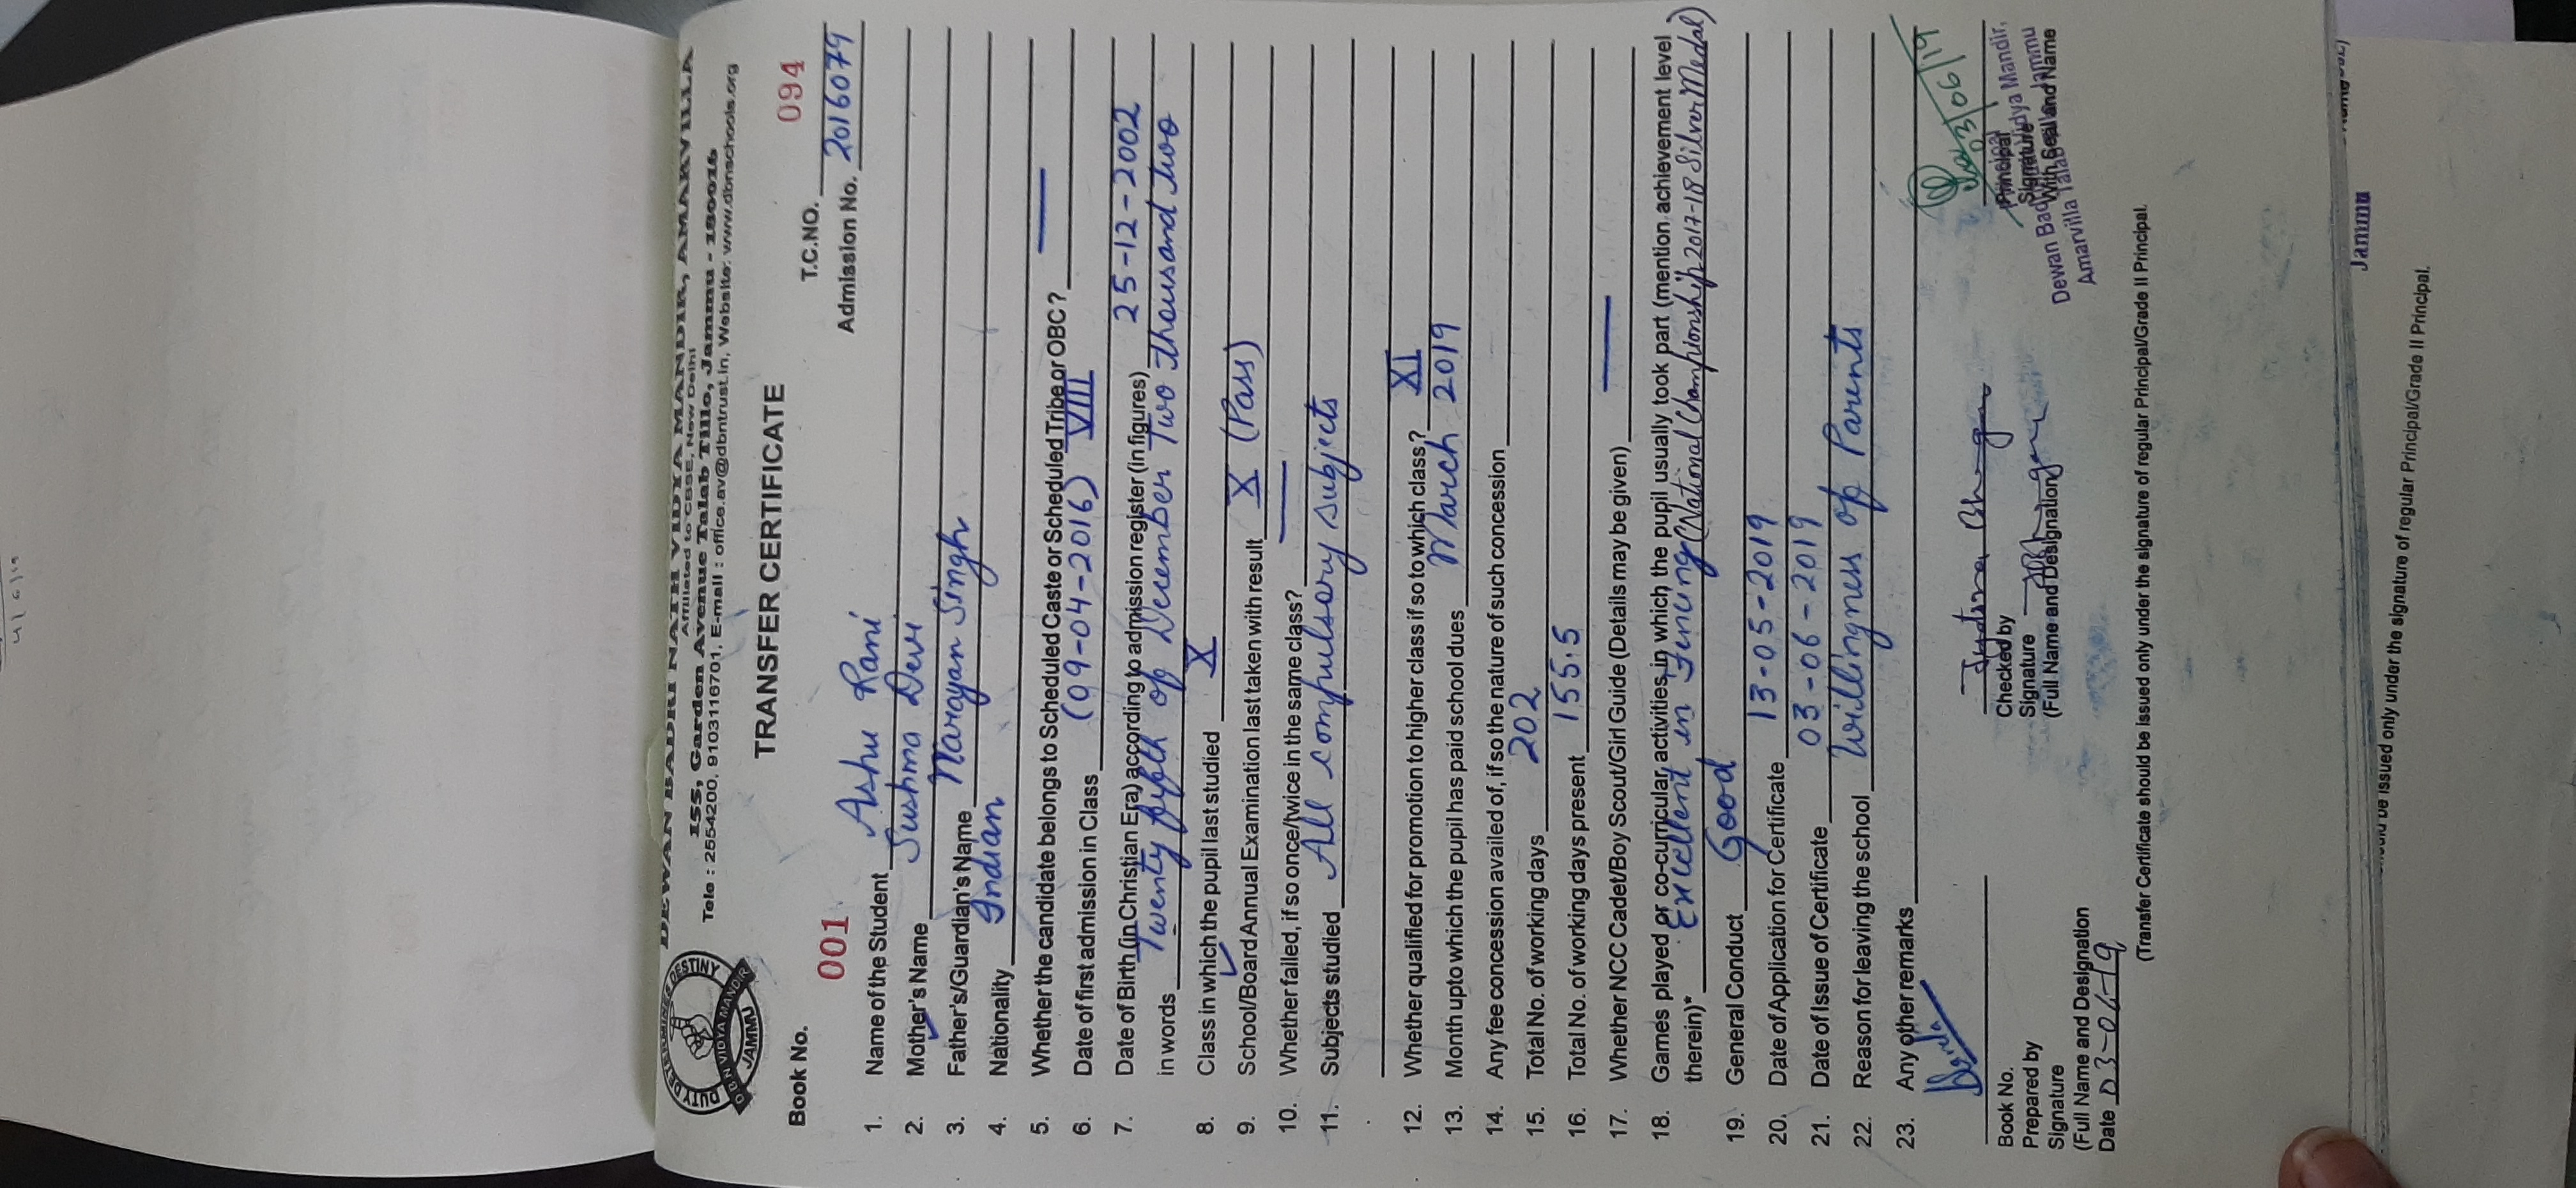 DEWAN BADRI NATH VIDYA MANDIR, AMARVILLA
Affiliated to CBSE, New Delhi
ISS, Garden Avenue Talab Tillo, Jammu - 180016
Tele : 2554200, 9103116701, E-mail : office.av@dbntrust.in, Website: www.dbnschools.org
DUTY DETERMINES DESTINY
D B N VIDYA MANDIR
JAMMU
TRANSFER CERTIFICATE
Book No. 001 T.C.NO. 094
Admission No. 2016079
1. Name of the Student Ashu Rani
2. Mother's Name Sushma Devi
3. Father's/Guardian's Name Narayan Singh
4. Nationality Indian
5. Whether the candidate belongs to Scheduled Caste or Scheduled Tribe or OBC? —
6. Date of first admission in Class (09-04-2016) VIII
7. Date of Birth (in Christian Era) according to admission register (in figures) 25-12-2002
in words Twenty fifth of December Two thousand two
8. Class in which the pupil last studied X
9. School/Board Annual Examination last taken with result X (Pass)
10. Whether failed, if so once/twice in the same class? —
11. Subjects studied All compulsory subjects
12. Whether qualified for promotion to higher class if so to which class? XI
13. Month upto which the pupil has paid school dues March 2019
14. Any fee concession availed of, if so the nature of such concession
15. Total No. of working days 202
16. Total No. of working days present 155.5
17. Whether NCC Cadet/Boy Scout/Girl Guide (Details may be given) —
18. Games played or co-curricular activities in which the pupil usually took part (mention achievement level
therein)* Excellent in Fencing (National Championship 2017-18 Silver Medal)
19. General Conduct Good
20. Date of Application for Certificate 13-05-2019
21. Date of Issue of Certificate 03-06-2019
22. Reason for leaving the school Willingness of Parents
23. Any other remarks
03/06/19
Book No. Checked by Principal
Prepared by Signature Signature
Signature (Full Name and Designation) With Seal and Name
(Full Name and Designation
Date 03-06-19
Principal
Dewan Badri Nath Vidya Mandir,
Amarvilla Talab Tillo Jammu
(Transfer Certificate should be issued only under the signature of regular Principal/Grade II Principal.
Jammu
be issued only under the signature of regular Principal/Grade II Principal.